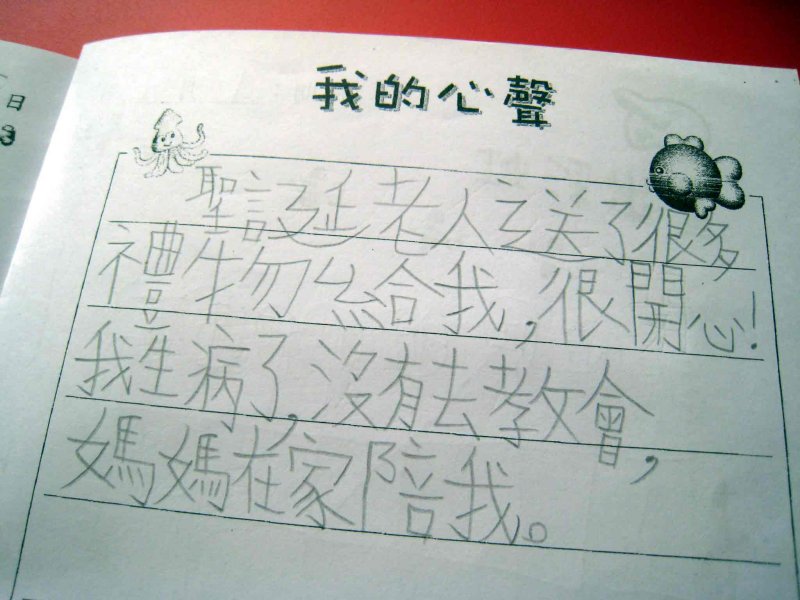 我的心聲
聖誕老人送了很多
禮物給我,很開心!
我生病了,沒有去教會,
媽媽在家陪我。
日